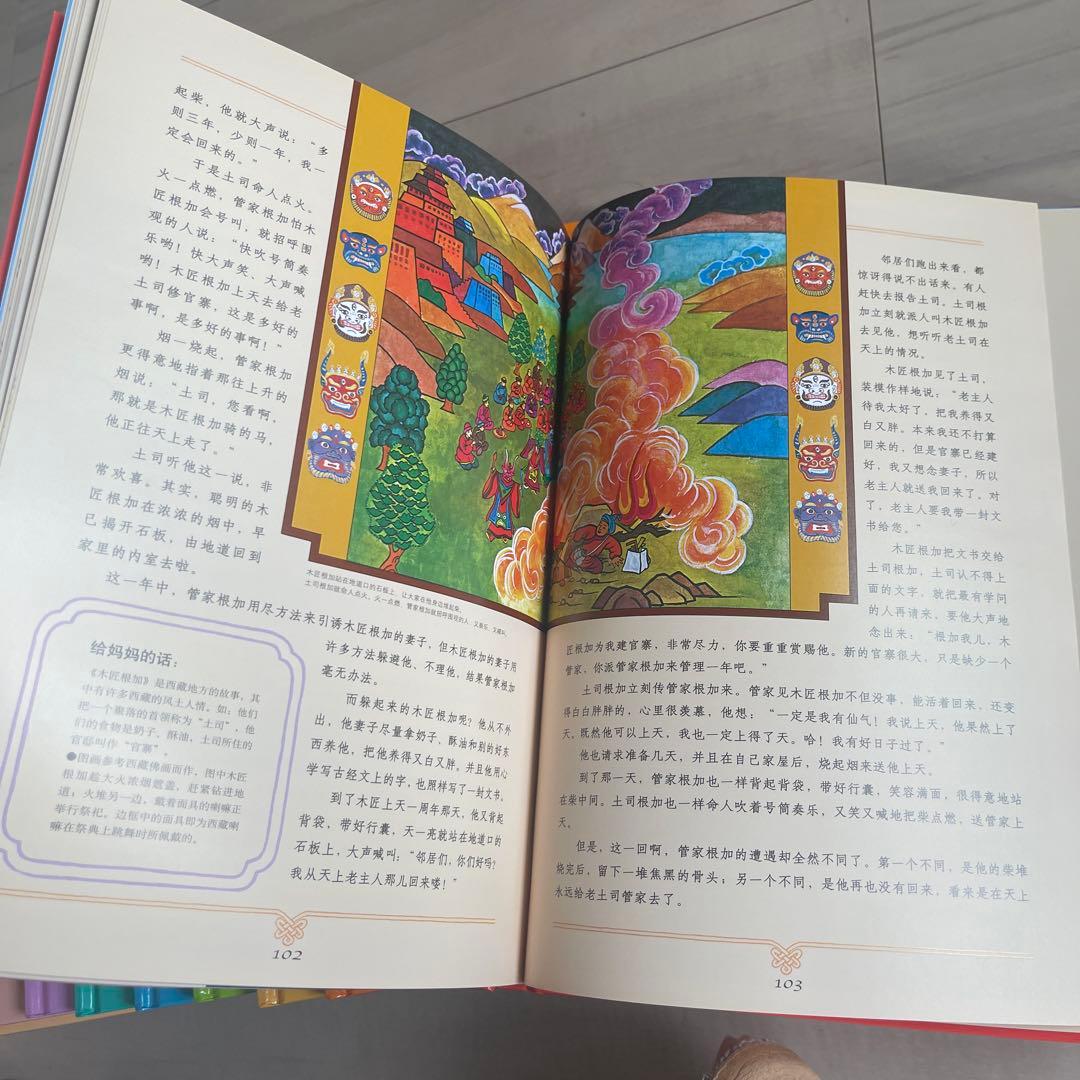 起柴，他就大声说：“多
则三年，少则一年，我一
定会回来的。”
于是土司命人点火。
火一点燃，管家根加怕木
匠根加会号叫，就招呼围
观的人说：“快吹号筒奏
乐哟！快大声笑、大声喊
哟！木匠根加上天去给老
土司修官寨，这是多好的
事啊，是多好的事啊！”
烟一烧起，管家根加
更得意地指着那往上升的
烟说：“土司，您看啊，
那就是木匠根加骑的马，
他正往天上走了。”
土司听他这一说，非
常欢喜。其实，聪明的木
匠根加在浓浓的烟中，早
已揭开石板，由地道回到
家里的内室去啦。
这一年中，管家根加用尽方法来引诱木匠根加的妻子，但木匠根加的妻子用
许多方法躲避他、不理他，结果管家根加
毫无办法。
而躲起来的木匠根加呢？他从不外
出，他妻子尽量拿奶子、酥油和别的好东
西养他，把他养得又白又胖。并且他用心
学写古经文上的字，也照样写了一封文书。
到了木匠上天一周年那天，他又背起
背袋，带好行囊，天一亮就站在地道口的
石板上，大声喊叫：“邻居们，你们好吗？
我从天上老主人那儿回来喽！”
木匠根加站在地道口的石板上，让大家在他身边堆起柴。
土司根加就命人点火，火一点燃，管家根加就招呼围观的人，又奏乐、又喊叫。
给妈妈的话：
《木匠根加》是西藏地方的故事，其
中有许多西藏的风土人情。如：他们
把一个聚落的首领称为“土司”，他
们的食物是奶子、酥油，土司所住的
官邸叫作“官寨”。
●图画参考西藏佛画而作，图中木匠
根加趁大火浓烟遮盖，赶紧钻进地
道；火堆另一边，戴着面具的喇嘛正
举行祭祀。边框中的面具即为西藏喇
嘛在祭典上跳舞时所佩戴的。
102
邻居们跑出来看，都
惊讶得说不出话来。有人
赶快去报告土司。土司根
加立刻就派人叫木匠根加
去见他，想听听老土司在
天上的情况。
木匠根加见了土司，
装模作样地说：“老主人
待我太好了，把我养得又
白又胖。本来我还不打算
回来的，但是官寨已经建
好，我又想念妻子，所以
老主人就送我回来了。对
了，老主人要我带一封文
书给您。”
木匠根加把文书交给
土司根加，土司认不得上
面的文字，就把最有学问
的人再请来，要他大声地
念出来：“根加我儿，木
匠根加为我建官寨，非常尽力，你要重重赏赐他。新的官寨很大，只是缺少一个
管家，你派管家根加来管理一年吧。”
土司根加立刻传管家根加来。管家见木匠根加不但没事，能活着回来，还变
得白白胖胖的，心里很羡慕，他想：“一定是我有仙气！我说上天，他果然上了
天。既然他可以上天，我也一定上得了天。哈！我有好日子过了。”
他也请求准备几天，并且在自己家屋后，烧起烟来送他上天。
到了那一天，管家根加也一样背起背袋，带好行囊，笑容满面，很得意地站
在柴中间。土司根加也一样命人吹着号筒奏乐，又笑又喊地把柴点燃，送管家上
天。
但是，这一回啊，管家根加的遭遇却全然不同了。第一个不同，是他的柴堆
烧完后，留下一堆焦黑的骨头；另一个不同，是他再也没有回来，看来是在天上
永远给老土司管家去了。
103